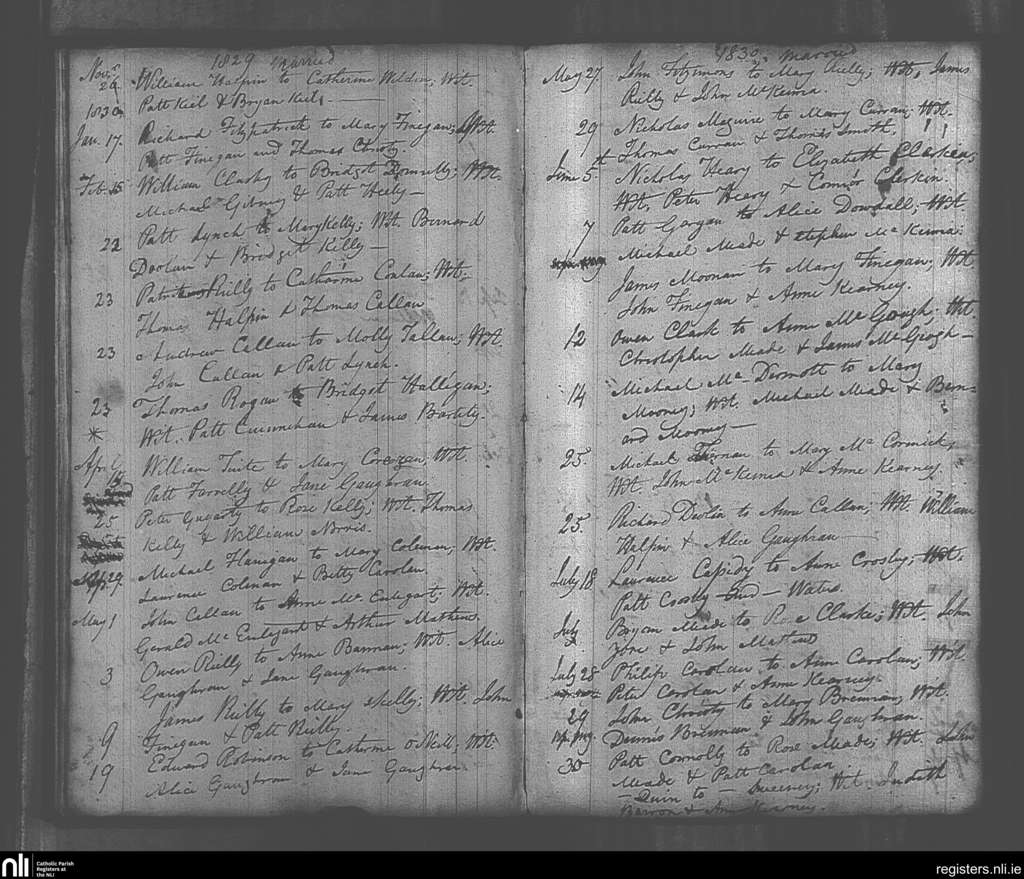 1829 Married
Novr. 29 William Halpin to Catherine Weldon; Wit.
1830 Patt Keil & Bryan Keil
Jan. 17. Richard Fitzpatrick to Mary Finegan; Wit.
Patt Finegan and Thomas Christy
Feb. 15 William Clarky to Bridgt Donnelly; Wit.
Michael Gibney & Patt Heely
22 Patt Lynch to Mary Kelly; Wit. Bernard
Doolan & Bridget Kelly
23 Patrick Reilly to Catharine Conlan; Wit.
Thomas Halpin & Thomas Callan
23 Andrew Callan to Molly Tallan; Wit.
John Callan & Patt Lynch.
23 Thomas Rogan to Bridget Halligan;
Wit. Patt & James Bartely.
April William Tuite to Mary Corrigan, Wit.
Patt Farrelly & Jane Gaughran.
25 Peter to Rose Kelly; Wit. Thomas
Kelly & William Norris.
29 Michael Flanigan to Mary Coleman; Wit.
Laurence Colman & Betty Carolan.
May 1 John Callan to Anne Mc Entegart; Wit.
Gerald Mc Entegart & Arthur Mathews.
3 Owen Reilly to Anne Bannan; Wit. Alice
Gaughran & Jane Gaughran.
James Reilly to Mary Kelly; Wit. John
9 Finegan & Patt Reilly.
19 Edward Robinson to Catherine O'Neill; Wit.
Alice Gaughran & Jane Gaughran
1830. Married
May 27. John Fitzimons to Mary Reilly; Wit. James
Reilly & John McKenna.
29 Nicholas Maguire to Mary Curran; Wit.
Thomas Curran & Thomas Smith.
June 5th. Nicholas Heary to Elizabeth Clarken;
Wit. Peter Heary & Connor Clerkin.
7 Patt Gargan to Alice Dowdall; Wit.
Michael Meade & Stephen McKenna.
James Moonan to Mary Finegan; Wit.
John Finegan & Anne Kearney.
12 Owen Clark to Anne Mc Gough; Wit
Christopher Meade & James McGough
14 Michael Mc Dermott to Mary
Mooney; Wit. Michael Meade & Bern-
ard Mooney
25. Michael Tiernan to Mary Mc Cormick,
Wit. John McKenna & Anne Kearney.
25. Richard Devlin to Anne Callan; Wit. William
Halpin & Alice Gaughran
July 18. Laurence Cassidy to Anne Crosby; Wit.
Patt Crosby Waters.
July Bryan Meade to Rose Clarke; Wit. John
& John Mathews
July 28 Philip Carolan to Anne Carolan; Wit.
Peter Carolan & Anne Kearney.
29 John Christy to Mary Brennan; Wit.
Dennis Brennan & John Gaughran.
30 Patt Connolly to Rose Meade; Wit. John
Meade & Patt Carolan
Quin to Sweeney; Wit. Judith
Barron & Ann Kearney.
nli
Catholic Parish
Registers at
the NLI
registers.nli.ie